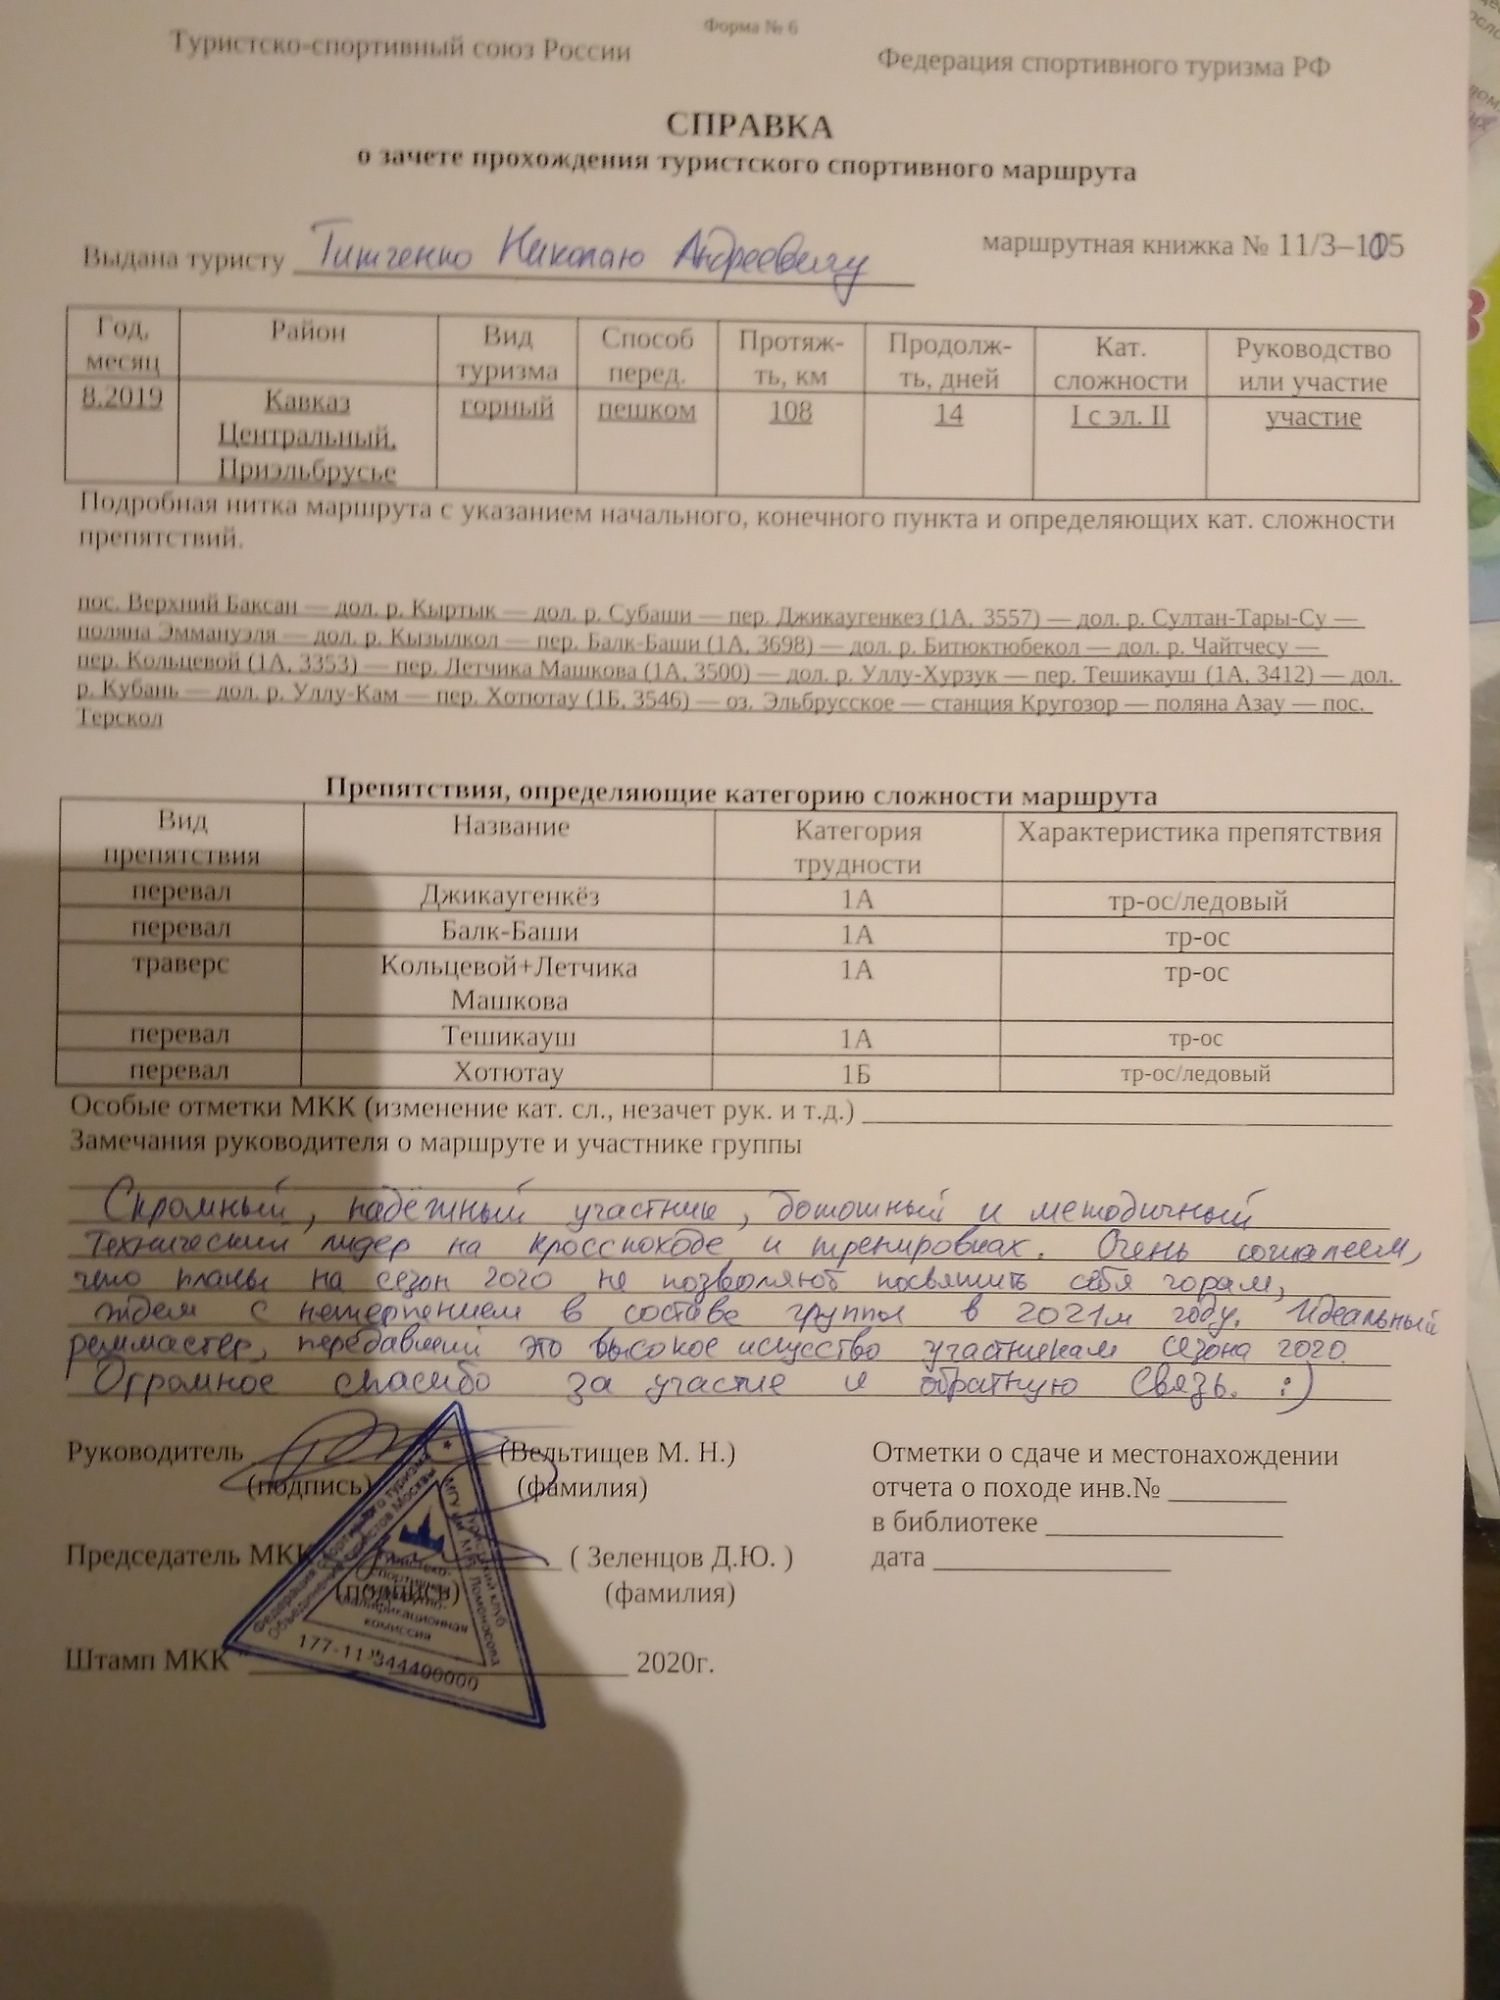 Форма № 6
Туристско-спортивный союз России
Федерация спортивного туризма РФ
СПРАВКА
о зачете прохождения туристского спортивного маршрута
Выдана туристу Титченко Николаю Андреевичу
маршрутная книжка № 11/3–105
Год, месяц | Район | Вид туризма | Способ перед. | Протяж-ть, км | Продолж-ть, дней | Кат. сложности | Руководство или участие
8.2019 | Кавказ Центральный, Приэльбрусье | горный | пешком | 108 | 14 | I с эл. II | участие
Подробная нитка маршрута с указанием начального, конечного пункта и определяющих кат. сложности
препятствий.
пос. Верхний Баксан — дол. р. Кыртык — дол. р. Субаши — пер. Джикаугенкез (1А, 3557) — дол. р. Султан-Тары-Су —
поляна Эммануэля — дол. р. Кызылкол — пер. Балк-Баши (1А, 3698) — дол. р. Битюктюбекол — дол. р. Чайтчесу —
пер. Кольцевой (1А, 3353) — пер. Летчика Машкова (1А, 3500) — дол. р. Уллу-Хурзук — пер. Тешикауш (1А, 3412) — дол.
р. Кубань — дол. р. Уллу-Кам — пер. Хотютау (1Б, 3546) — оз. Эльбрусское — станция Кругозор — поляна Азау — пос.
Терскол
Препятствия, определяющие категорию сложности маршрута
Вид препятствия | Название | Категория трудности | Характеристика препятствия
перевал | Джикаугенкёз | 1А | тр-ос/ледовый
перевал | Балк-Баши | 1А | тр-ос
траверс | Кольцевой+Летчика Машкова | 1А | тр-ос
перевал | Тешикауш | 1А | тр-ос
перевал | Хотютау | 1Б | тр-ос/ледовый
Особые отметки МКК (изменение кат. сл., незачет рук. и т.д.)
Замечания руководителя о маршруте и участнике группы
Скромный, надёжный участник, дотошный и методичный
Технический лидер на кросспоходе и тренировках. Очень сожалеем,
что планы на сезон 2020 не позволяют посвятить себя горам,
ждем с нетерпением в составе группы в 2021м году. Идеальный
реммастер, передавший это высокое искусство участникам сезона 2020.
Огромное спасибо за участие и обратную связь. :)
Руководитель (Вельтищев М. Н.)
(подпись) (фамилия)
Председатель МКК ( Зеленцов Д.Ю. )
(подпись) (фамилия)
Штамп МКК " " 2020г.
Отметки о сдаче и местонахождении
отчета о походе инв.№
в библиотеке
дата
Федерация спортивного туризма
Объединение туристов Москвы
Туристский клуб
МГУ им. М.В. Ломоносова
Туристско-
спортивная
маршрутно-
квалификационная
комиссия
177-11-344400000